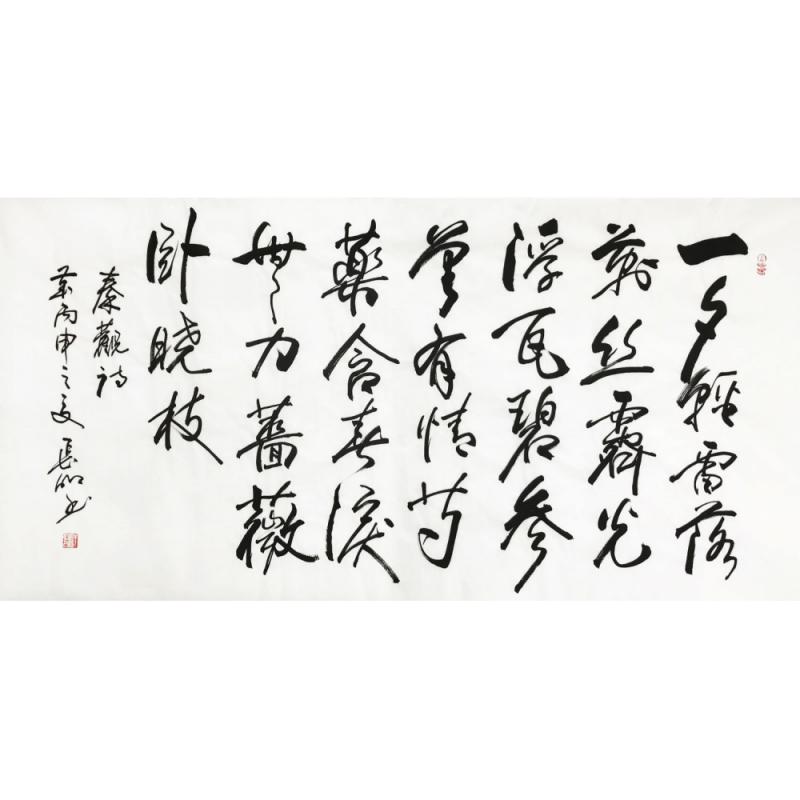 一夕輕雷落
萬丝霽光
浮瓦碧參
差有情芍
藥含春淚
無力薔薇
卧晓枝
秦觀詩
丙申之夏 長书